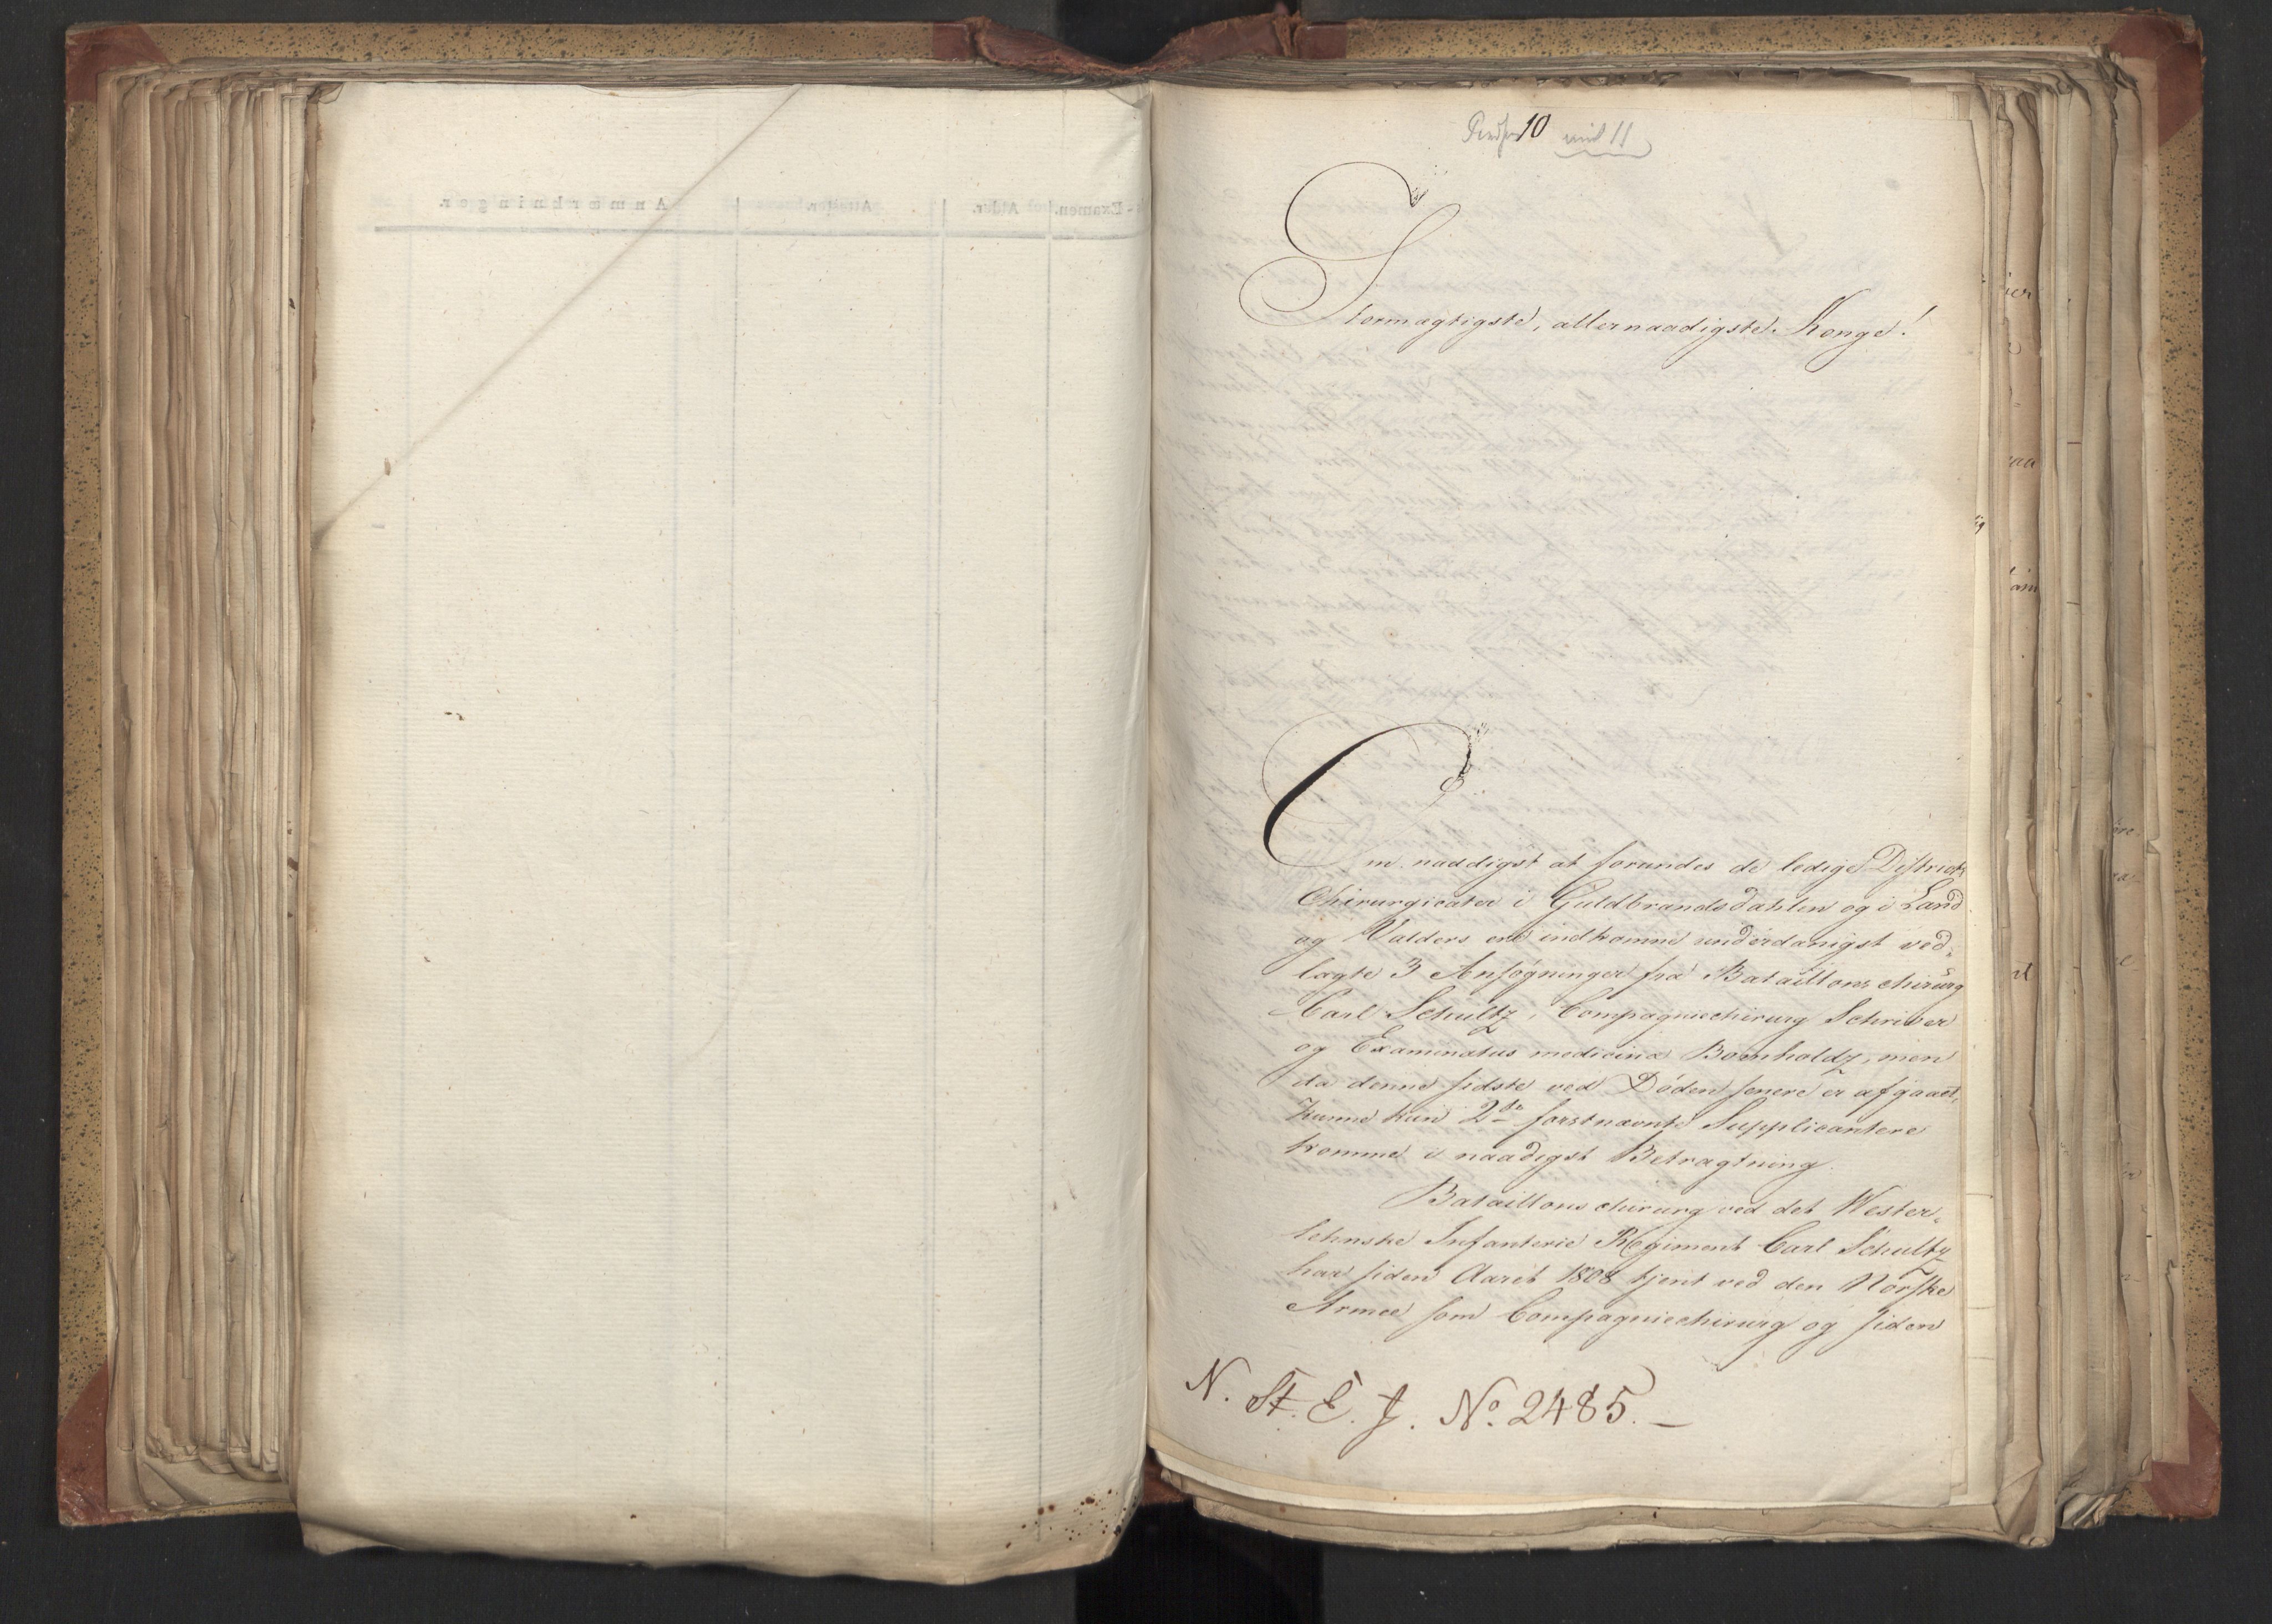 10 vid 11
Stormægtigste, allernaadigste Konge!
Om naadigst at forundes de ledige Districts
Chirurgicater i Guldbrandsdahlen og i Land
og Valders ere indkomne underdanigst ved-
lagte 3 Ansøgninger fra Bataillonschirurg
Carl Schultz, Compagniechirurg Schriver
og Examinatus medicinæ Bornholdz, men
da denne sidste ved Døden senere er afgaaet,
kunne kun 2de førstnævnte Supplicantere
komme i naadigst Betragtning.
Bataillons chirurg ved det Wester-
lehnske Infanterie Regiment Carl Schultz
har siden Aaret 1808 tjent ved den Norske
Armee som Compagniechirurg og siden
N. St. E. J. No. 2485.-